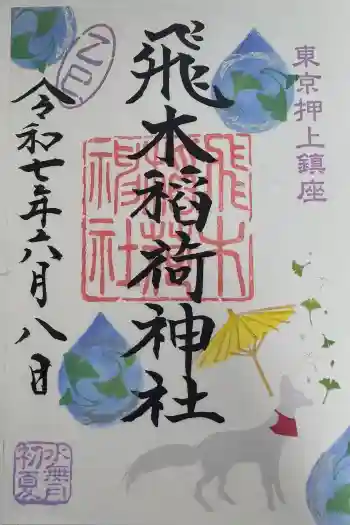 東京押上鎮座
飛木稲荷神社
飛木稲荷神社
令和七年六月八日
水無月
初夏